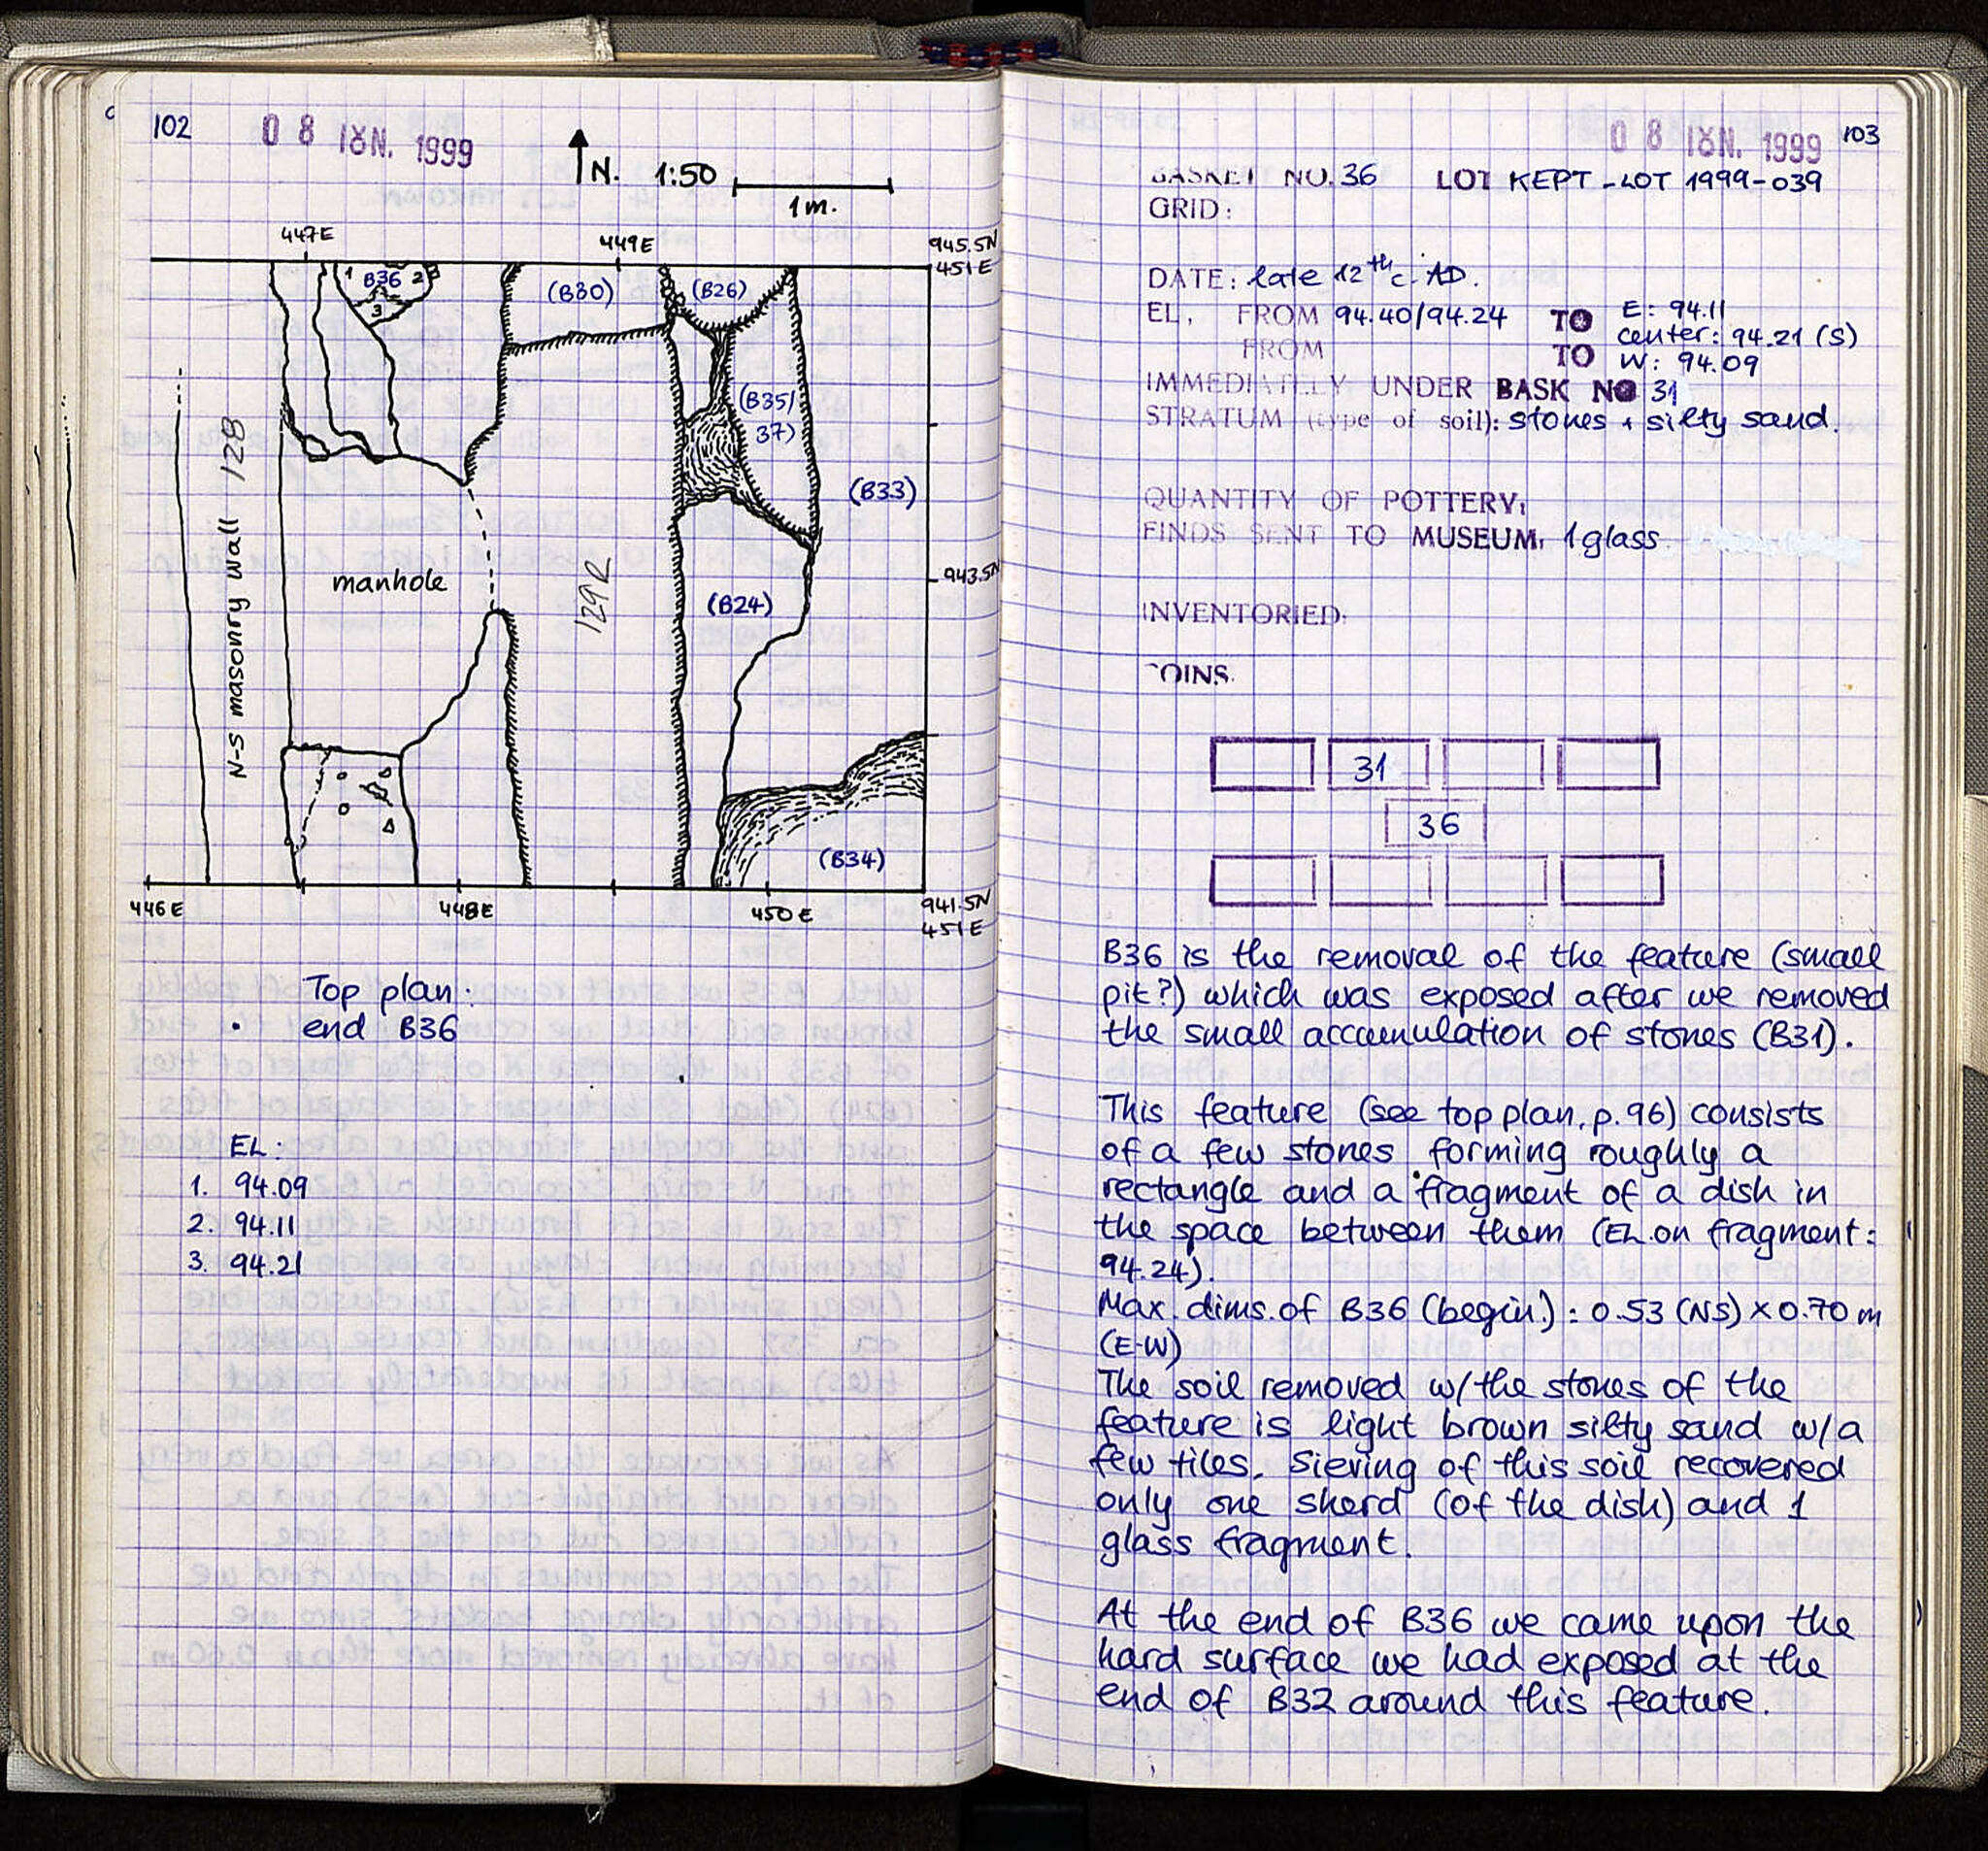 102
08 ΙΟΥΝ. 1999
N. 1:50
1m.
447E
449E
945.5N
451E
1 B36 2
3
(B30)
(B26)
(B35/
37)
(B33)
943.5N
N-S masonry wall 128
manhole
129R
(B24)
(B34)
446E
448E
450E
941.5N
451E
Top plan:
end B36
EL:
1. 94.09
2. 94.11
3. 94.21
08 ΙΟΥΝ. 1999
103
BASKET NO. 36 LOT KEPT - LOT 1999-039
GRID:
DATE: late 12th c. AD.
EL. FROM 94.40/94.24 TO E: 94.11
center: 94.21 (S)
FROM TO W: 94.09
IMMEDIATELY UNDER BASK NO 31
STRATUM (type of soil): stones + silty sand.
QUANTITY OF POTTERY:
FINDS SENT TO MUSEUM: 1 glass
INVENTORIED:
COINS.
31
36
B36 is the removal of the feature (small
pit?) which was exposed after we removed
the small accumulation of stones (B31).
This feature (see top plan, p.96) consists
of a few stones forming roughly a
rectangle and a fragment of a dish in
the space between them (EL. on fragment:
94.24).
Max. dims. of B36 (begin.): 0.53 (NS) x 0.70 m
(E-W)
The soil removed w/the stones of the
feature is light brown silty sand w/a
few tiles. Sieving of this soil recovered
only one sherd (of the dish) and 1
glass fragment.
At the end of B36 we came upon the
hard surface we had exposed at the
end of B32 around this feature.